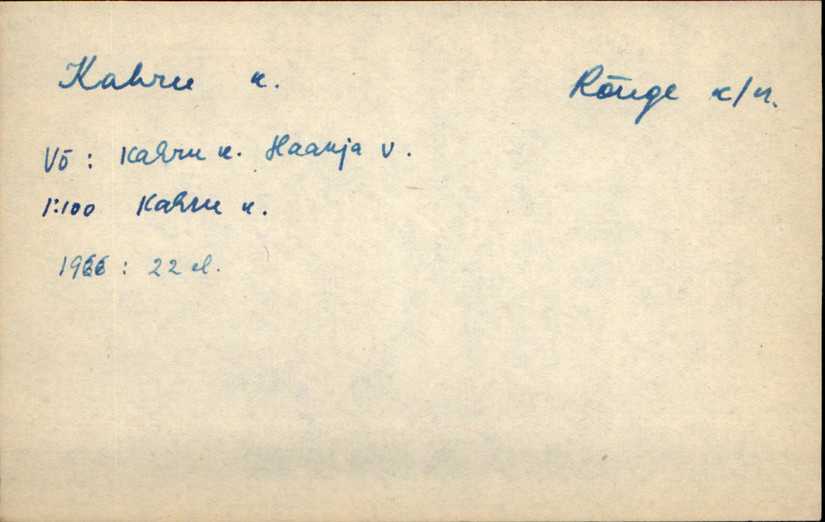 Kahru k. Rõuge k/n.
Võ: Kahru k. Haanja v.
1:100 Kahru k.
1966: 22 el.